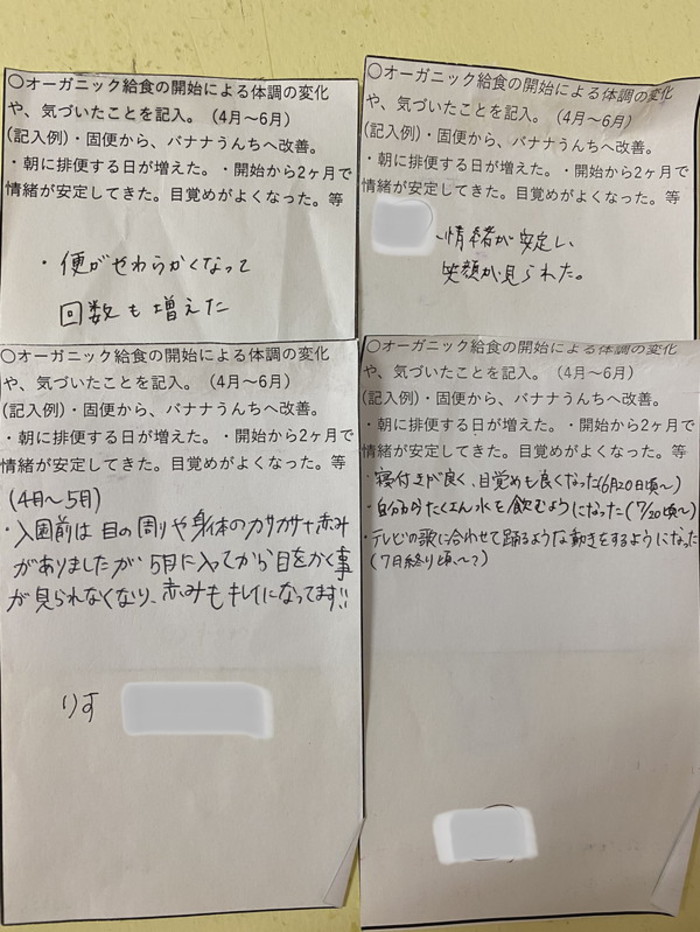 〇オーガニック給食の開始による体調の変化
や、気づいたことを記入。（4月〜6月）
(記入例)・固便から、バナナうんちへ改善。
・朝に排便する日が増えた。・開始から2ヶ月で
情緒が安定してきた。目覚めがよくなった。等
・便がやわらかくなって
回数も増えた
〇オーガニック給食の開始による体調の変化
や、気づいたことを記入。（4月〜6月）
(記入例)・固便から、バナナうんちへ改善。
・朝に排便する日が増えた。・開始から2ヶ月で
情緒が安定してきた。目覚めがよくなった。等
情緒が安定し、
笑顔が見られた。
〇オーガニック給食の開始による体調の変化
や、気づいたことを記入。（4月〜6月）
(記入例)・固便から、バナナうんちへ改善。
・朝に排便する日が増えた。・開始から2ヶ月で
情緒が安定してきた。目覚めがよくなった。等
(4月〜5月)
・入園前は目の周りや身体のカサカサや赤み
がありましたが、5月に入ってから目をかく事
が見られなくなり、赤みもキレイになってます!!
りす
〇オーガニック給食の開始による体調の変化
や、気づいたことを記入。（4月〜6月）
(記入例)・固便から、バナナうんちへ改善。
・朝に排便する日が増えた。・開始から2ヶ月で
情緒が安定してきた。目覚めがよくなった。等
・寝付きが良く、目覚めも良くなった(6月20日頃〜)
・自分からたくさん水を飲むようになった(7/20頃〜)
・テレビの歌に合わせて踊るような動きをするようになった
(7月終り頃、〜?)